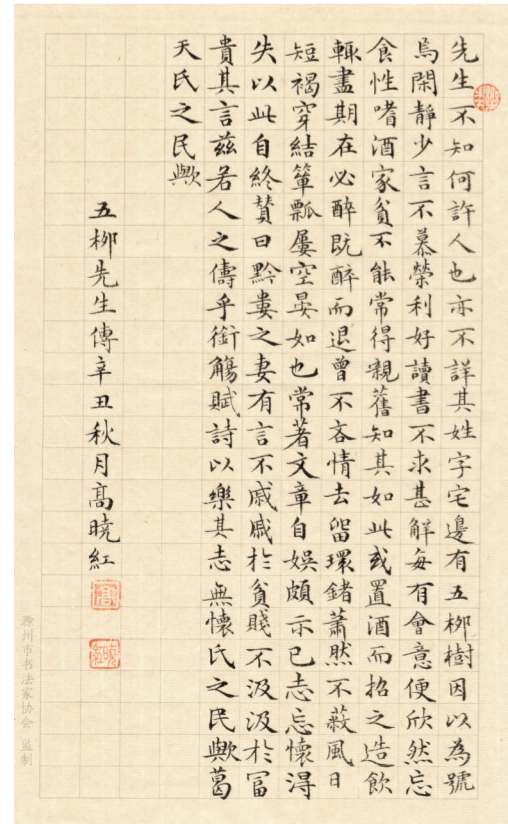 先生不知何許人也亦不詳其姓字宅邊有五柳樹因以為號
焉閑靜少言不慕榮利好讀書不求甚解每有會意便欣然忘
食性嗜酒家貧不能常得親舊知其如此或置酒而招之造飲
輒盡期在必醉既醉而退曾不吝情去留環鍺蕭然不蔽風日
短褐穿結簞瓢屢空晏如也常著文章自娛頗示已志忘懷得
失以此自終贊曰黔婁之妻有言不戚戚於貧賤不汲汲於富
貴其言茲若人之儔乎銜觴賦詩以樂其志無懷氏之民歟葛
天氏之民歟
五柳先生傳辛丑秋月高曉紅
滁州市书法家协会 监制